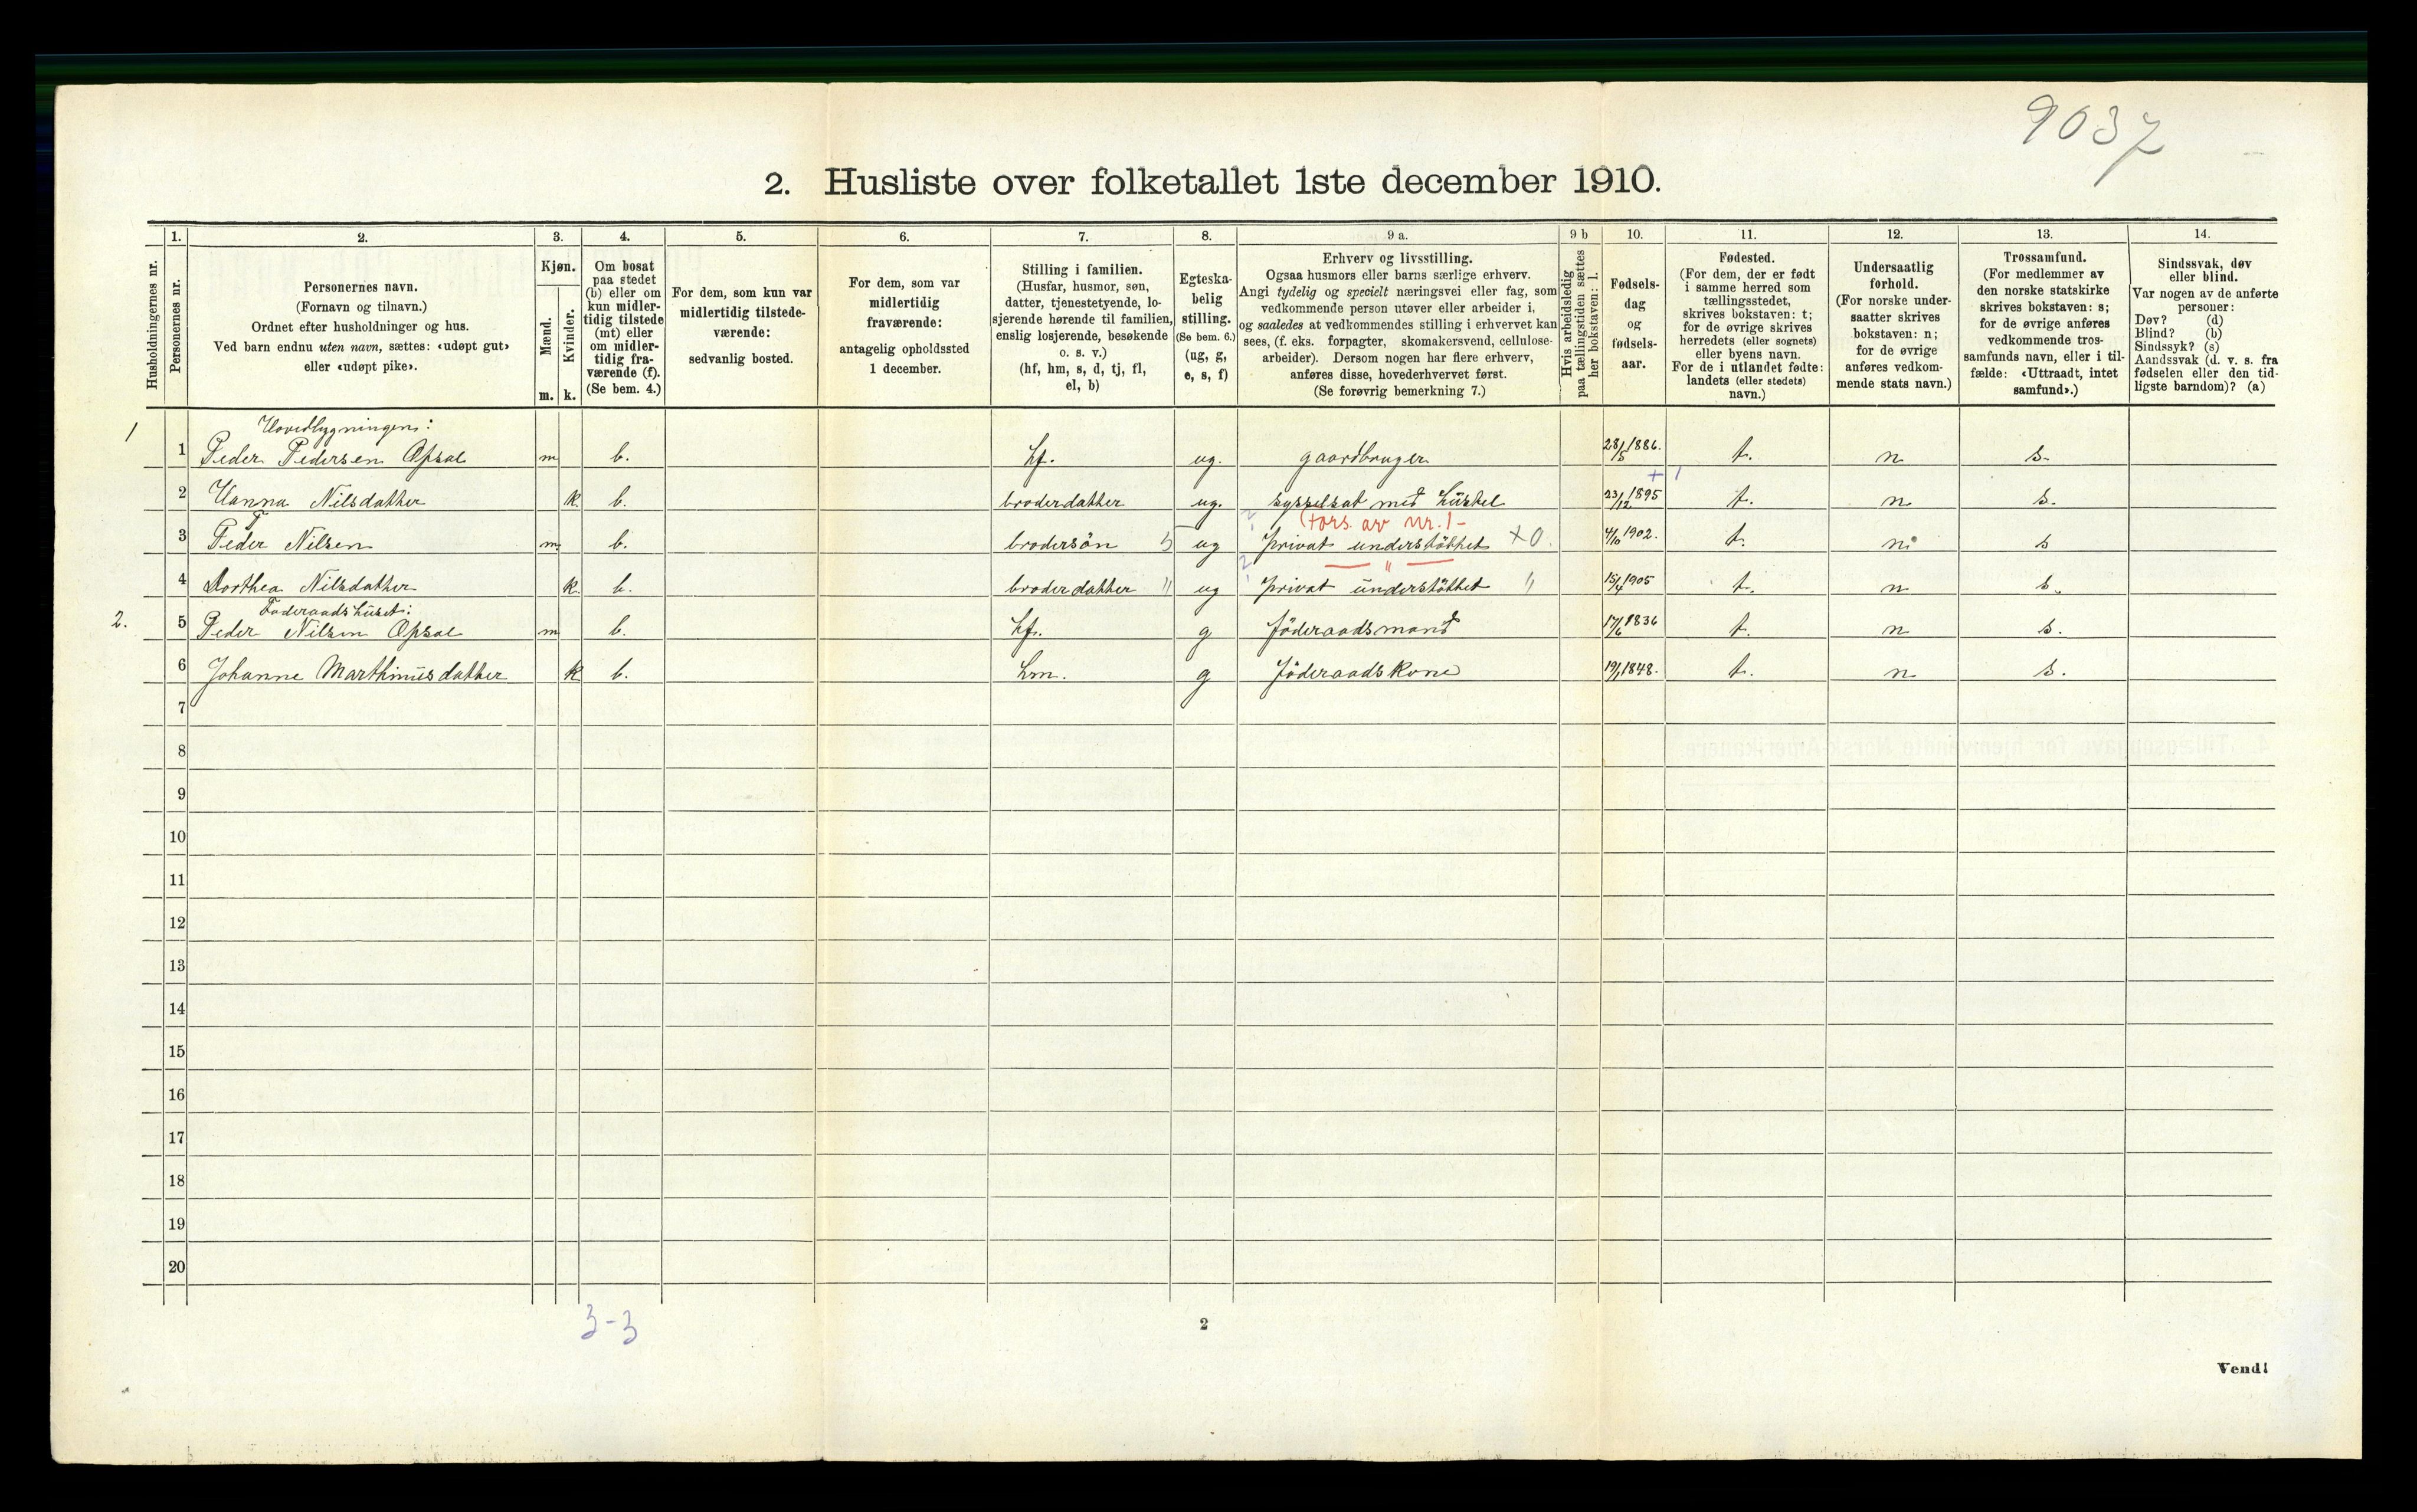 9037
2. Husliste over folketallet 1ste december 1910.
Husholdningernes nr.
1.
Personernes nr.
2.
Personernes navn.
(Fornavn og tilnavn.)
Ordnet efter husholdninger og hus.
Ved barn endnu uten navn, sættes: «udøpt gut»
eller «udøpt pike».
3.
Kjøn.
Mænd.
Kvinder.
m. k.
4.
Om bosat
paa stedet
(b) eller om
kun midler-
tidig tilstede
(mt) eller
om midler-
tidig fra-
værende (f).
(Se bem. 4.)
5.
For dem, som kun var
midlertidig tilstede-
værende:
sedvanlig bosted.
6.
For dem, som var
midlertidig
fraværende:
antagelig opholdssted
1 december.
7.
Stilling i familien.
(Husfar, husmor, søn,
datter, tjenestetyende, lo-
sjerende hørende til familien,
enslig losjerende, besøkende
o. s. v.)
(hf, hm, s, d, tj, fl,
el, b)
8.
Egteska-
belig
stilling.
(Se bem. 6.)
(ug, g,
e, s, f)
9 a.
Erhverv og livsstilling.
Ogsaa husmors eller barns særlige erhverv.
Angi tydelig og specielt næringsvei eller fag, som
vedkommende person utøver eller arbeider i,
og saaledes at vedkommendes stilling i erhvervet kan
sees, (f. eks. forpagter, skomakersvend, cellulose-
arbeider). Dersom nogen har flere erhverv,
anføres disse, hovederhvervet først.
(Se forøvrig bemerkning 7.)
9 b
Hvis arbeidsledig
paa tællingstiden sættes
her bokstaven: l.
10.
Fødsels-
dag
og
fødsels-
aar.
11.
Fødested.
(For dem, der er født
i samme herred som
tællingsstedet,
skrives bokstaven: t;
for de øvrige skrives
herredets (eller sognets)
eller byens navn.
For de i utlandet fødte:
landets (eller stedets)
navn.)
12.
Undersaatlig
forhold.
(For norske under-
saatter skrives
bokstaven: n;
for de øvrige
anføres vedkom-
mende stats navn.)
13.
Trossamfund.
(For medlemmer av
den norske statskirke
skrives bokstaven: s;
for de øvrige anføres
vedkommende tros-
samfunds navn, eller i til-
fælde: «Uttraadt, intet
samfund».)
14.
Sindssvak, døv
eller blind.
Var nogen av de anførte
personer:
Døv? (d)
Blind? (b)
Sindssyk? (s)
Aandssvak (d. v. s. fra
fødselen eller den tid-
ligste barndom)? (a)
Hovedbygningen:
1 1 Peder Pedersen Opsal m b. hf. ug. gaardbruger 28/5 1886. t. n s.
+ 1
2 Hanna Nilsdatter k. b. broderdatter ug. sysselsat med hüstel 23/12 1895 t. n s.
(fors. av nr. 1-
3 Peder Nilsen m. b. brodersön 5 ug privat understöttet +0. 1902. t. n s
— " —
4 Dorthea Nilsdatter k. b. broderdatter " ug privat understöttet " 15/4 1905 t. n s.
Föderaadshuset:
2. 5 Peder Nilsen Opsal m b. hf. g föderaadsmand 17/6 1836 t. n s.
6 Johanne Marthinüsdatter k b. hm. g föderaadskone 19/1 1848. t. n s.
7
8
9
10
11
12
13
14
15
16
17
18
19
20
3-3
2
Vend!